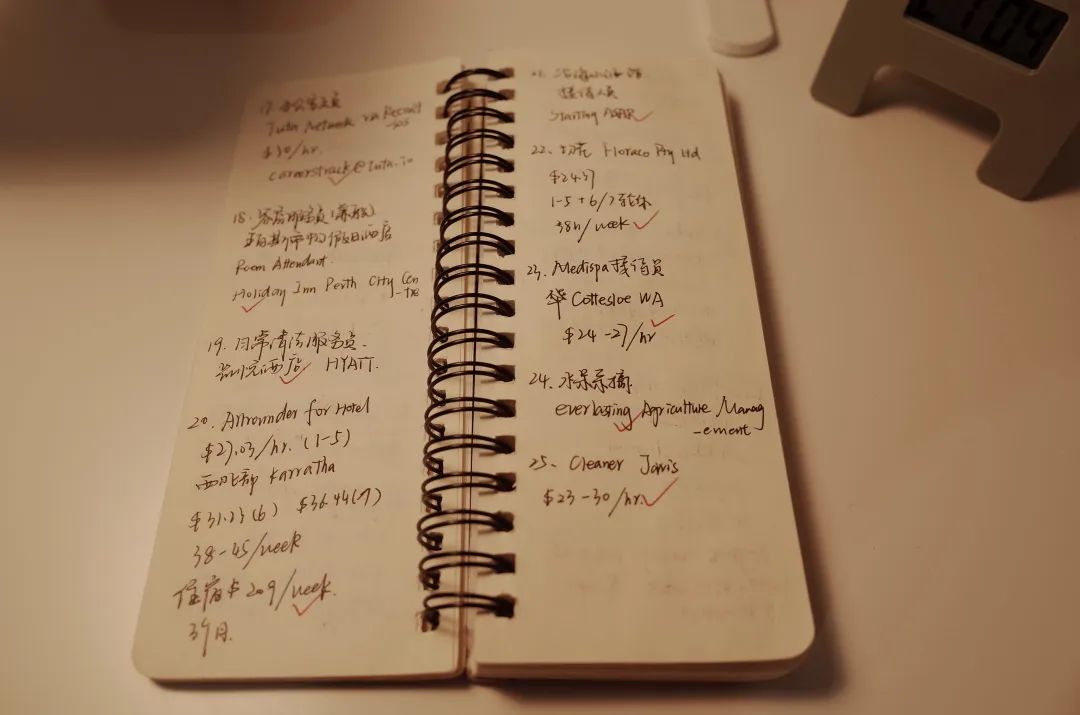 17. 办公室文员
Tutn Network via Recruit
$30/hr.
18. 客房服务员(兼职)
珀斯市中心假日酒店
Room Attendant.
Holiday Inn Perth City Cen
-tre
19. 日常清洁服务员.
凯悦酒店 HYATT.
20. Allrounder for Hotel
$27.03/hr. (1-5)
西北部 Karratha
$31.23(6) $36.44(7)
38-45/week
住宿$209/week.
3个月.
接待人员
Starting ASAP
22. 切花 Floraco Pty Ltd
$24.37
1-5 + 6/7轮休
38h/week
23. Medispa接待员
Cottesloe WA
$24-27/hr
24. 水果采摘.
everlasting Agriculture Manag
-ement
25. Cleaner Jarvis
$23-30/hr.